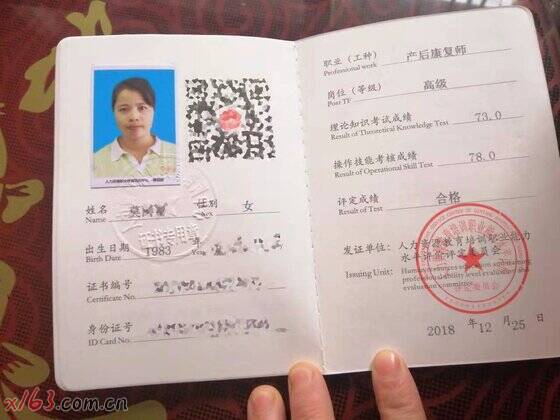 姓名
Name
性别
Sex
女
出生日期
Birth Date
1983
证书编号
Certificate No.
身份证号
ID Card No.
职业（工种）
Professional work
产后康复师
岗位（等级）
Post TF
高级
理论知识考试成绩
Result of Theoretical Knowledge Test
73.0
操作技能考核成绩
Result of Operational Skill Test
78.0
评定成绩
Result of Test
合格
发证单位：
人力资源教育培训职业能力
水平评价评定委员会
Issuing Unit:
Human resources education and training
professional ability level evaluation and
evaluation committee
评定委员会
2018 年 12 月 25 日
x/63.com.cn